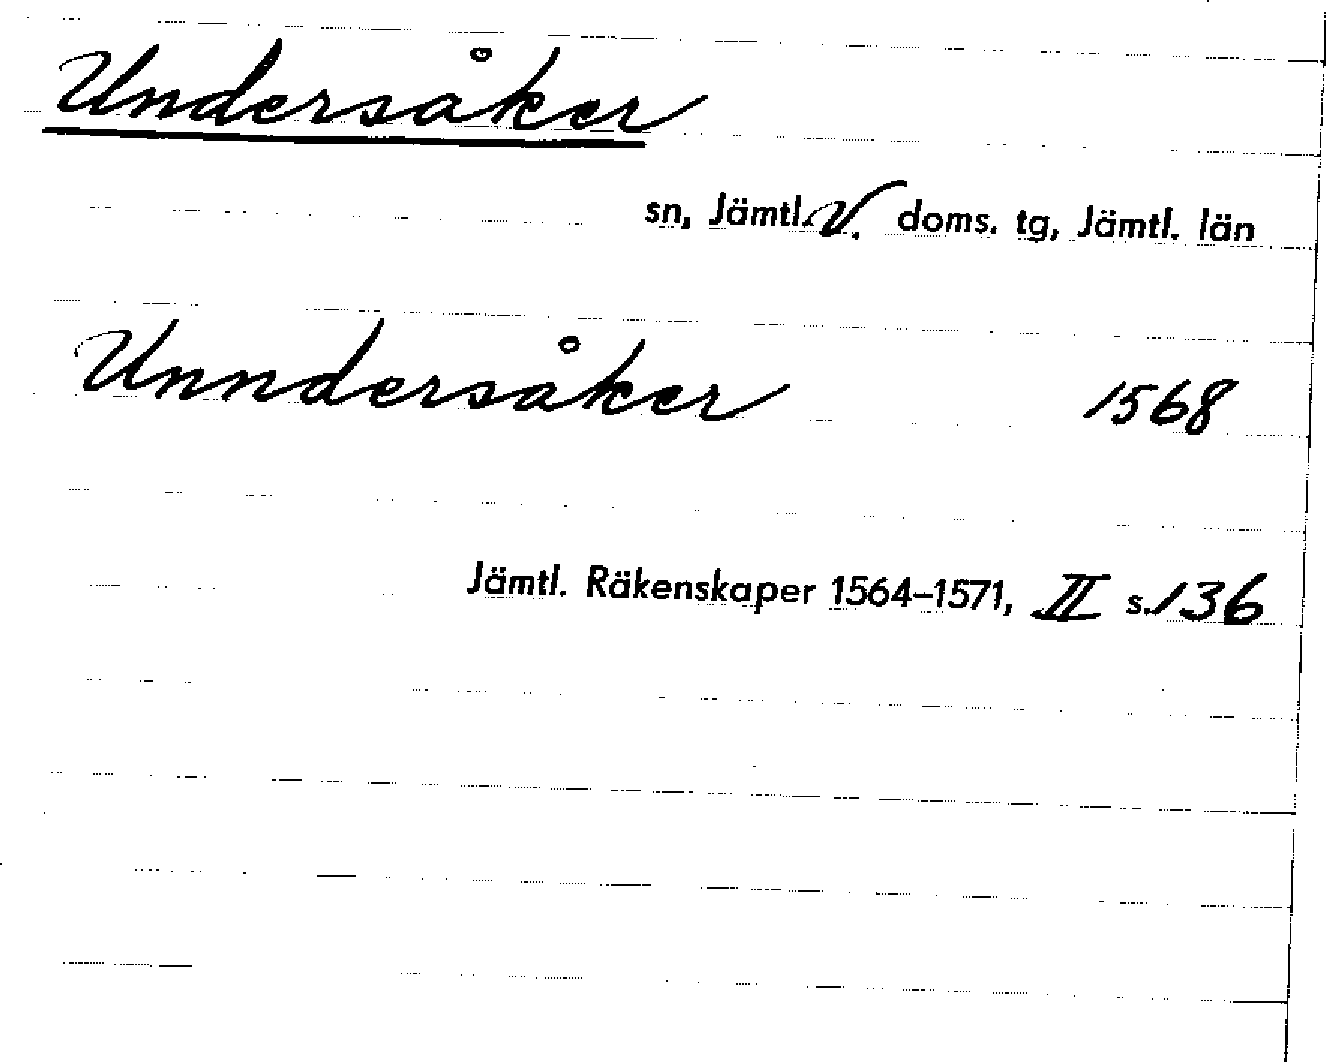 Undersåker
sn, Jämtl. V. doms. tg, Jämtl. län
Unndersåker 1568
Jämtl. Räkenskaper 1564-1571, II s. 136